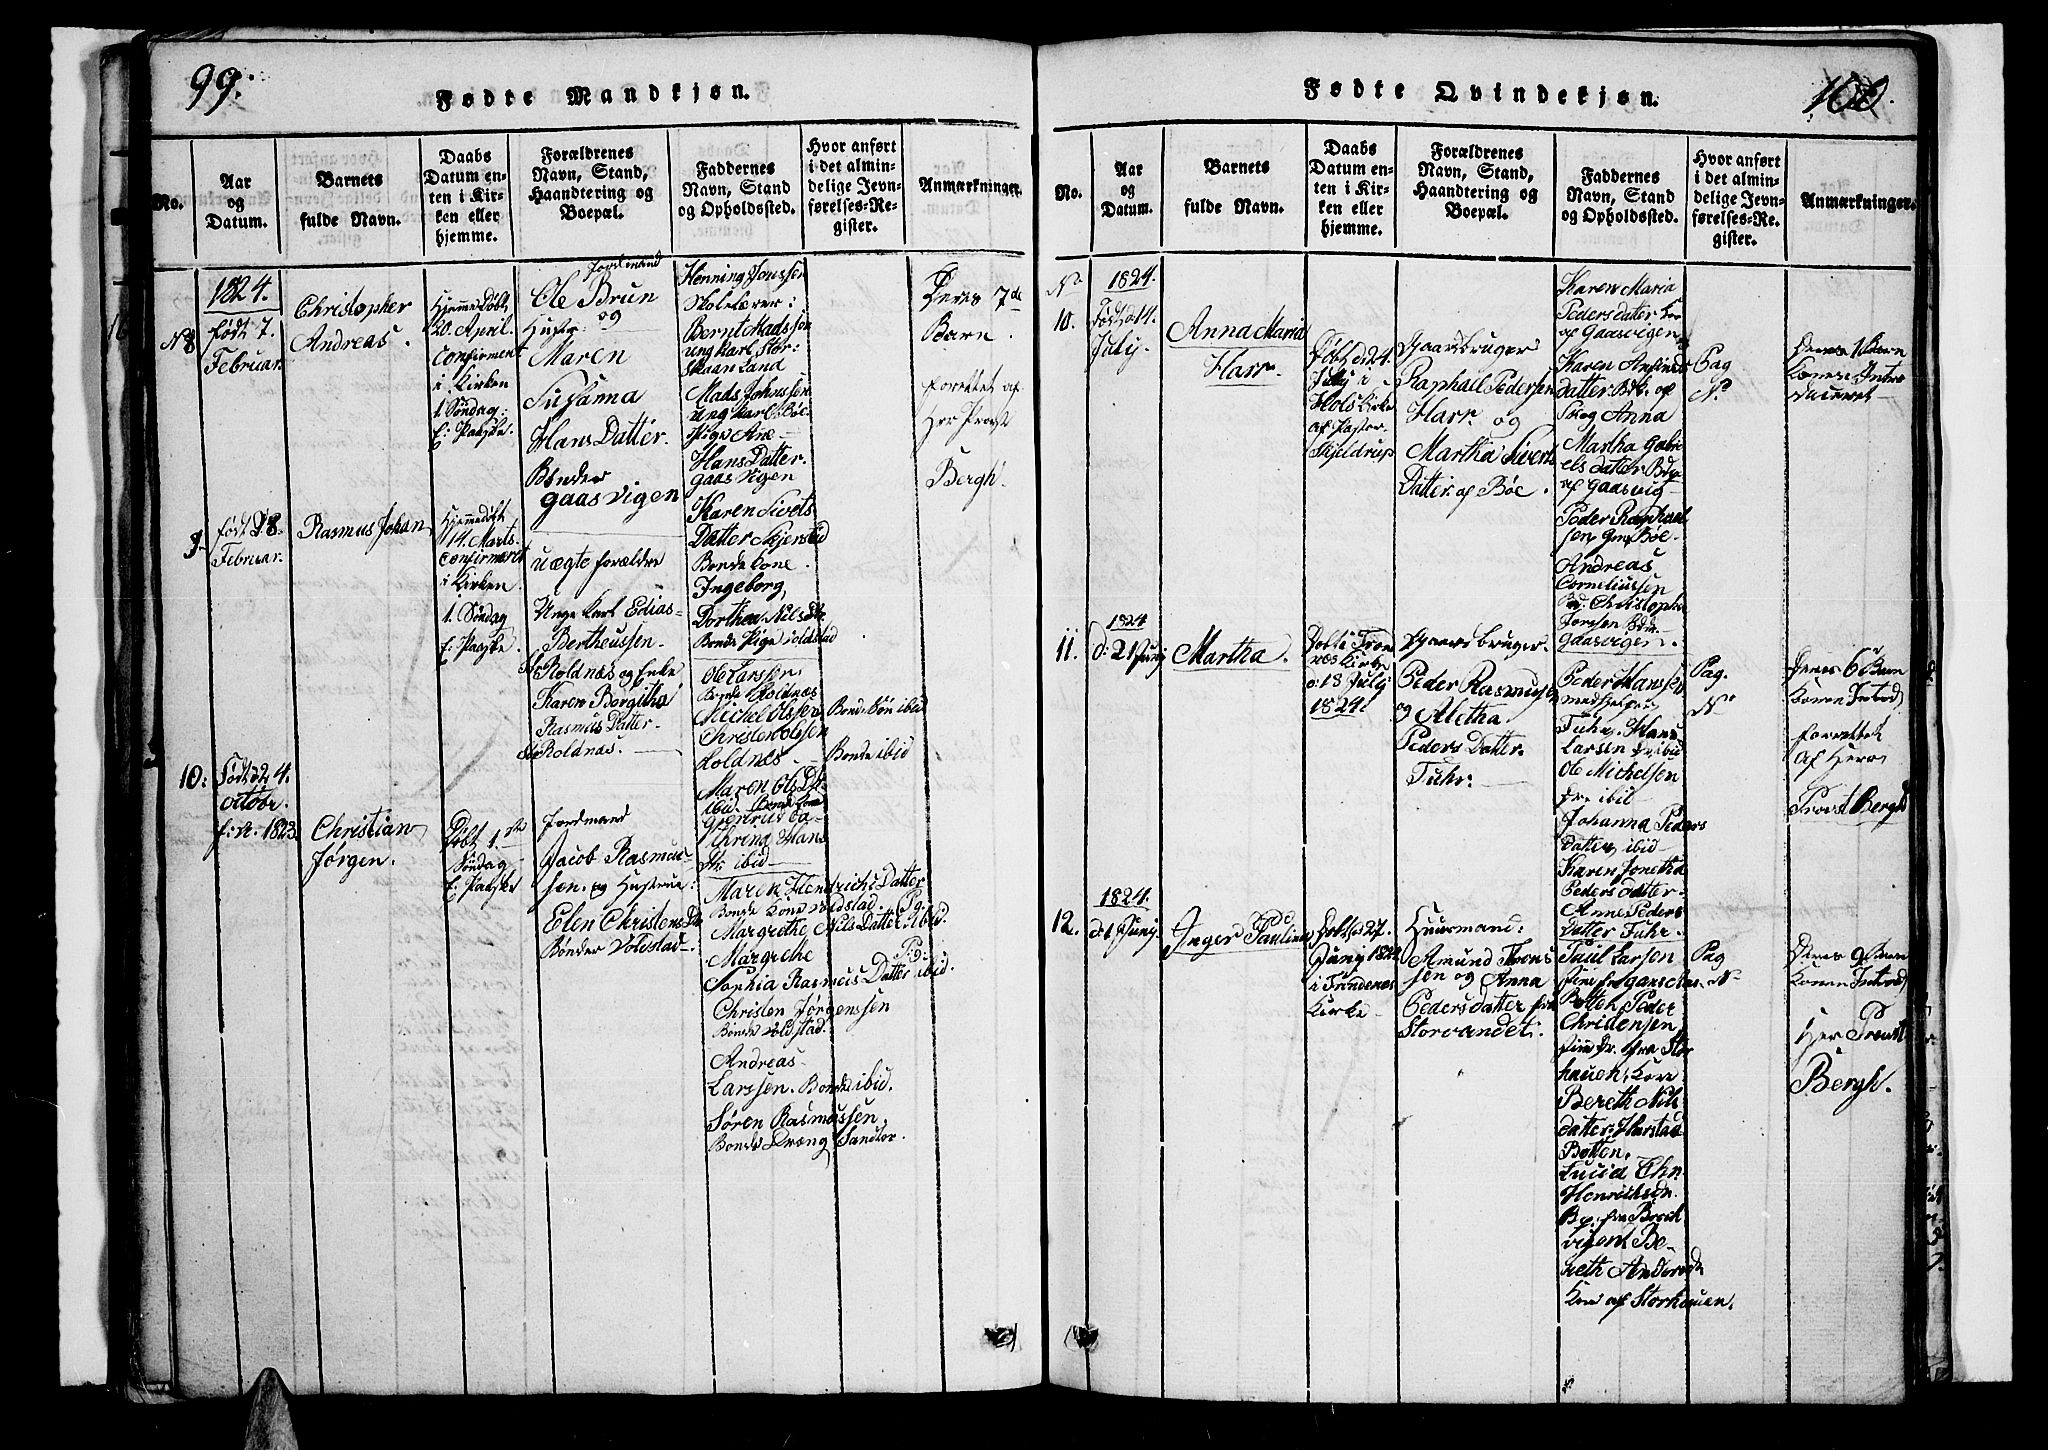 99.
Fødte Mandkjøn.
No.
Aar
og
Datum.
Barnets
fulde Navn.
Daabs
Datum en-
ten i Kir-
ken eller
hjemme.
Forældrenes
Navn, Stand,
Haandtering og
Boepæl.
Faddernes
Navn, Stand
og Opholdssted.
Hvor anført
i det almin-
delige Jevn-
førelses-Re-
gister.
Anmærkninger.
1824.
født 7.
Februar.
Christopher
Andreas.
Hjemmedøbt
20. April.
Confirment
i Kirken
1. Søndag
E: Paaske.
Ole Brun
og
Hustr.
Maren
Susanna
Hans Datter.
Bønder
gaasvigen
Henning Jonssen
Skolelærer:
Bernt Madssen
ung karl Stor:
skaanland
Mads Johnssen
ung karl
Pige Ane
Hans Datter.
gaasvigen
Deres 7de
Barn.
forrettet af
Hr Provst
Bergh.
9.
født 28.
Februar.
Rasmus Johan
Hjemmedøbt
14. Marts.
Confirmeret
i Kirken
1. Søndag
E: Paaske
uægte forældre
Unge karl Edias
Bertheussen
Roldnæs og Enke
Karen Bergitha
Rasmus Datter
Roldnæs.
Karen Sivers
Datter
Bonde Kone.
Ingeborg
Dorthea Nilsdtr
Bonde Pige Voldstad
Ole Larssen
Bonde Roldnæs
Michel Olssen Bonde Søn ibid
Christen Olssen
Roldnes - Bonde ibid
Maren Ols Dtr
ibid. Bonde Kone
ibid
10:
Født d. 4.
octobr.
f: A: 1823.
Christian
Jørgen.
Døbt 1ste
Søndag
E: Paaske
fordmand
Jacob Rasmus-
sen. og Hustrue:
Elen Christens D
Bønder Voldstad
Maren Hendrichs Datter
Bonde Kone Voldstad.
Margrethe Nils Datter. ibid.
Margrethe
Sophia Rasmus Datter ibid.
Christen Jørgenssen
Bonde Voldstad.
Andreas
Larssen. Bonde ibid.
Søren Rasmussen
Bonde Dreng Sandtor.
100.
Fødte Qvindekjøn.
No.
Aar
og
Datum.
Barnets
fulde Navn.
Daabs
Datum en-
ten i Kir-
ken eller
hjemme.
Forældrenes
Navn, Stand,
Haandtering og
Boepæl.
Faddernes
Navn, Stand
og Opholdssted.
Hvor anført
i det almin-
delige Jevn-
førelses-Re-
gister.
Anmærkninger.
No
10.
1824.
Født d. 14.
July.
Anna Maria
Harr.
Døbt d. 24.
July i
Hols Kirke
af Pastor
Skjeldrup
Gaardbruger
Raphael Pedersen
Harr og
Martha Sivert
Datter af Bøe.
Karen Maria
Pedersdatter
af Gaasvigen
og Anna
Martha Gabri
els datter
af Gaasvig
Peder Raphael
sen
Andreas
Corneliussen
Christopher
Jonssen
Gaasvigen.
Pag
No
Deres 1 Barn
Konen Intro
duceret
11.
1824
d: 21 Juny
Martha.
Døbt i Tron
næs Kirke
d: 18 July
1824.
Gaardbruger
Peder Rasmusen
og Aletha
Peders Datter.
Fuhr.
Peder Hanssen
medhjelper
Fuhr, Hans
Larsen ibid
Ole Michelsen
ibid
Johanna Peders
Datter, ibid
Karen Jonetha
Pedersdatter
Anne Peders
Datter Fuhr.
Pag.
No
Deres 6 Barn
Konen Introd
forrettet
af Herr
Provst Bergh
12.
1824.
d. 1 Juny.
Inger Pauline
Døbt d. 27.
Juny 1824
i Trondenes
Kirke
Huusmand:
Amund Trons
sen og Anna
Pedersdatter fra
Storvandet.
Paul Larsen
Botten Peder
Christensen
fra Stor
hauen, Kone
Bereth Nils
datter Harstad
Botten.
Lucia Chr.
Henrichsdn.
vigen Be-
reth Andersdt
Kone af Storhauen.
Pag
No
Deres 9 Barn
Konen Introd
Her Provst
Bergh.